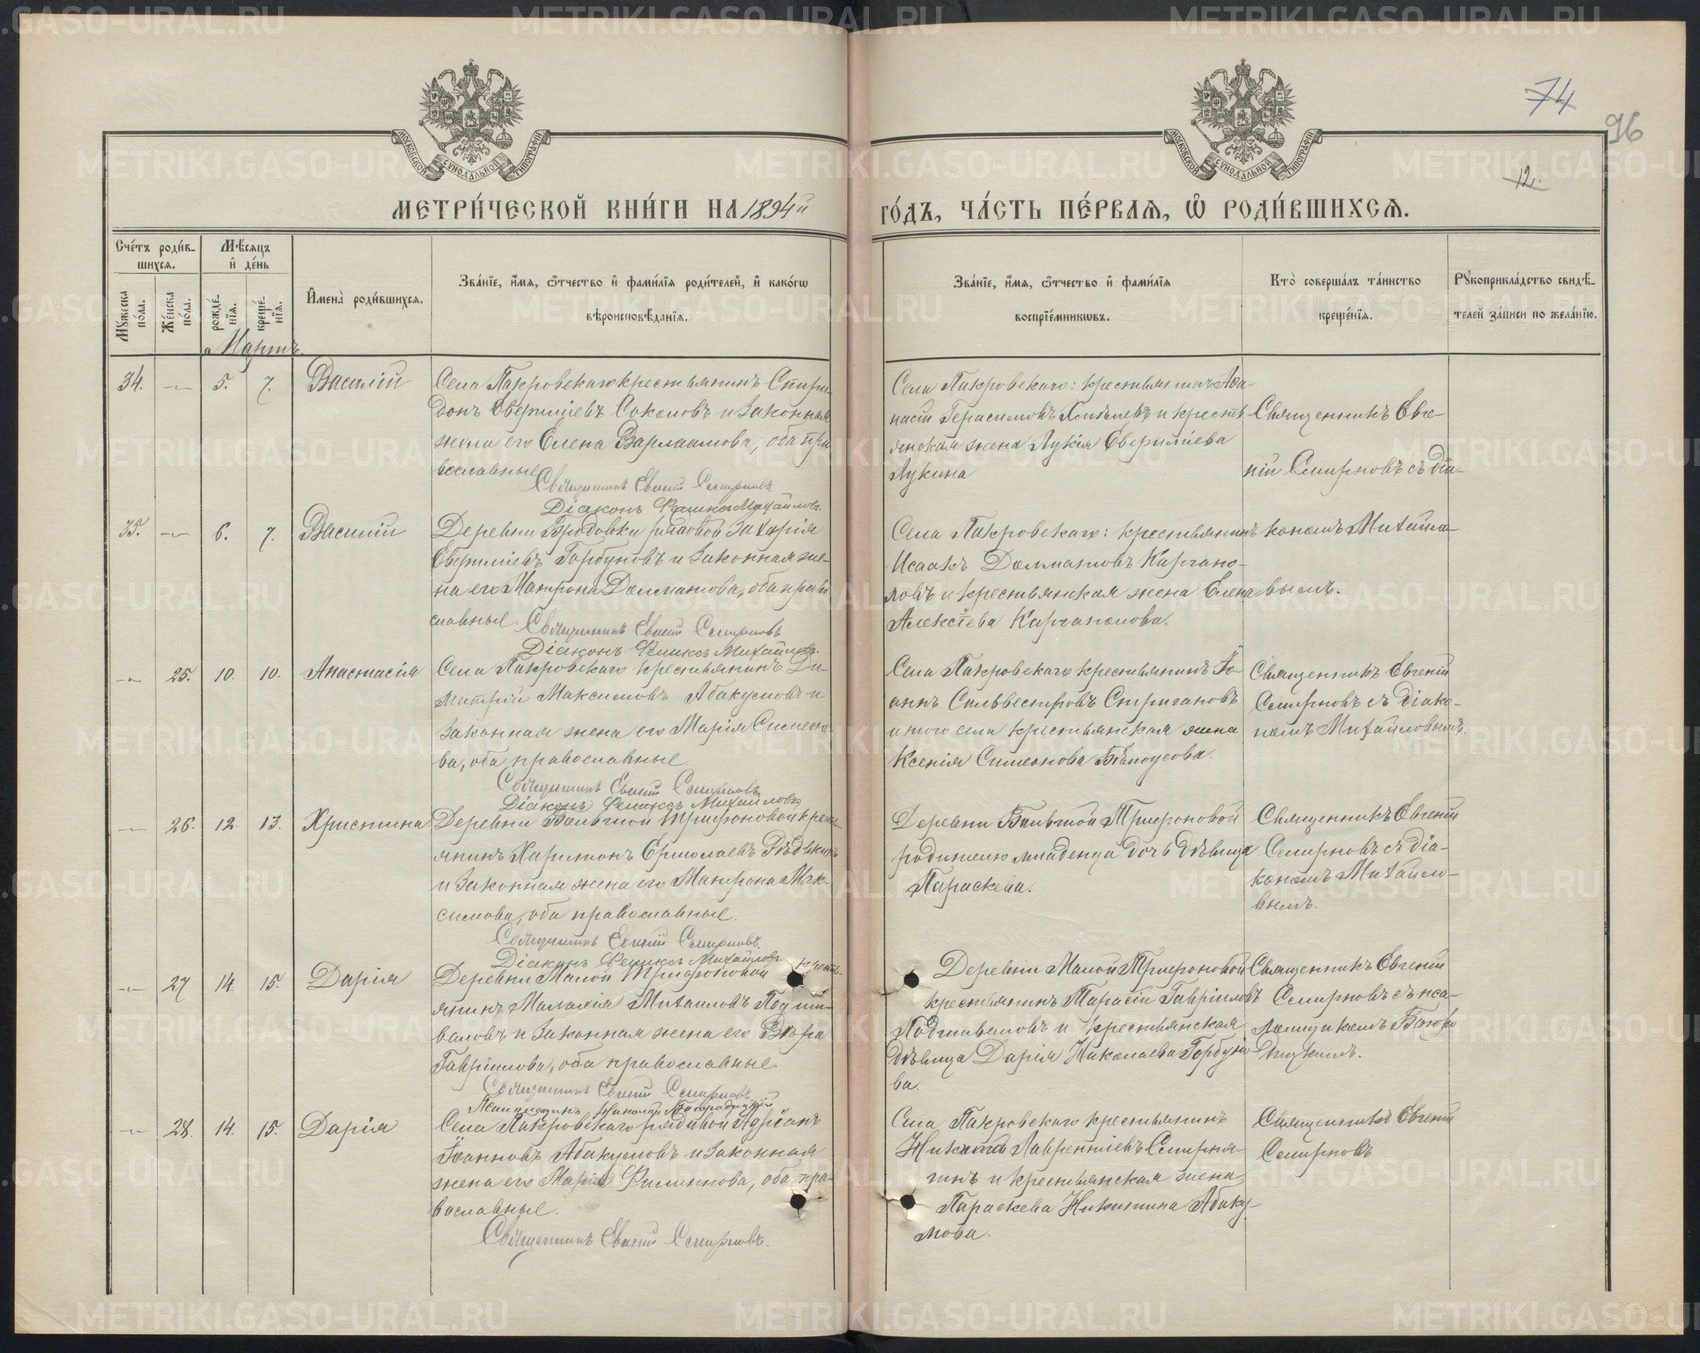 74
96
12.
МЕТРИ́ЧЕСКОЙ КНИ́ГИ НА 1894й
ГО́ДЪ, ЧА́СТЬ ПЕ́РВАЯ, Ѽ РОДИ́ВШИХСЯ.
Сче́тъ роди́в-
шихся.
Мꙋ́жеска по́ла.
Же́нска по́ла.
Мѣ́сяцъ
и҆ де́нь
рожде́нїя.
креще́нїя.
И҆мена̀ роди́вшихся.
Зва́нїе, и҆́мя, ѻ҆́тчество и҆ фами́лїя роди́телей, и҆ како́гѡ
вѣроисповѣ́данїя.
Зва́нїе, и҆́мя, ѻ҆́тчество и҆ фами́лїя
воспрїе́мникѡвъ.
Кто̀ соверша́лъ та́инство
креще́нїя.
Рꙋкоприкла́дство свидѣ́-
телей за́писи по жела́нїю.
Мартъ.
34. — 5. 7. Василій
Села Покровскаго крестьянинъ Спири-
донъ Евфиміевъ Соколовъ и законная
жена его Елена Варлаамова, оба пра
вославные
Священникъ Евгеній Смирновъ
Діаконъ Феликсъ Михайловъ
Села Покровскаго: крестьянинъ Афа-
насій Герасимовъ и кресть-
янская жена Лукія Евфиміева
Лукина
Священникъ Евге-
ній Смирновъ съ діа-
кономъ Михайло-
вымъ.
35. — 6. 7. Василій
Деревни Бродовки рядовой Захарія
Евфиміевъ Горбуновъ и законная же-
на его Матрона Далматова, оба право
славные.
Священникъ Евгеній Смирновъ
Діаконъ Феликсъ Михайловъ
Села Покровскаго: крестьянинъ
Исаакъ Далматовъ Каргапо-
ловъ и крестьянская жена Елена
Алексіева Каргаполова.
— 25. 10. 10. Анастасія
Села Покровскаго крестьянинъ Ди-
митрій Максимовъ Абакумовъ и
законная жена его Марія Симеоно-
ва, оба православные.
Священникъ Евгеній Смирновъ
Діаконъ Феликсъ Михайловъ
Села Покровскаго крестьянинъ Іо-
аннъ Сильвестровъ Стригановъ
и того села крестьянская жена
Ксенія Симеонова Бѣлоусова.
Священникъ Евгеній
Смирновъ съ діако-
номъ Михайловымъ.
— 26. 12. 13. Христина
Деревни Большой Трифоновой кресть-
янинъ Харитонъ Ермолаевъ Рѣдькинъ
и законная жена его Матрона Мак-
симова, оба православные.
Священникъ Евгеній Смирновъ.
Діаконъ Феликсъ Михайловъ
Деревни Большой Трифоновой
родителю младенца дочь дѣвица
Параскева.
Священникъ Евгеній
Смирновъ съ діа-
кономъ Михайло-
вымъ.
— 27 14. 15. Дарія
Деревни Малой Трифоновой кресть-
янинъ Малахія Михаиловъ Подши-
валовъ и законная жена его Вѣра
Гавріилова, оба православные
Священникъ Евгеній Смирновъ
Псаломщикъ Николай Богородицкій
Деревни Малой Трифоновой
крестьянинъ Тарасій Гавріиловъ
Подшиваловъ и крестьянская
дѣвица Дарія Николаева Горбуно
ва.
Священникъ Евгеній
Смирновъ съ пса-
ломщикомъ Богоро
дицкимъ.
— 28. 14. 15. Дарія
Села Покровскаго рядовой Адріанъ
Іоанновъ Абакумовъ и законная
жена его Марія Филиппова, оба пра-
вославные.
Священникъ Евгеній Смирновъ.
Села Покровскаго крестьянинъ
Никита Лаврентіевъ Смирня-
гинъ и крестьянская жена
Параскева Никитина Абаку-
мова.
Священникъ Евгеній
Смирновъ
METRIKI.GASO-URAL.RU